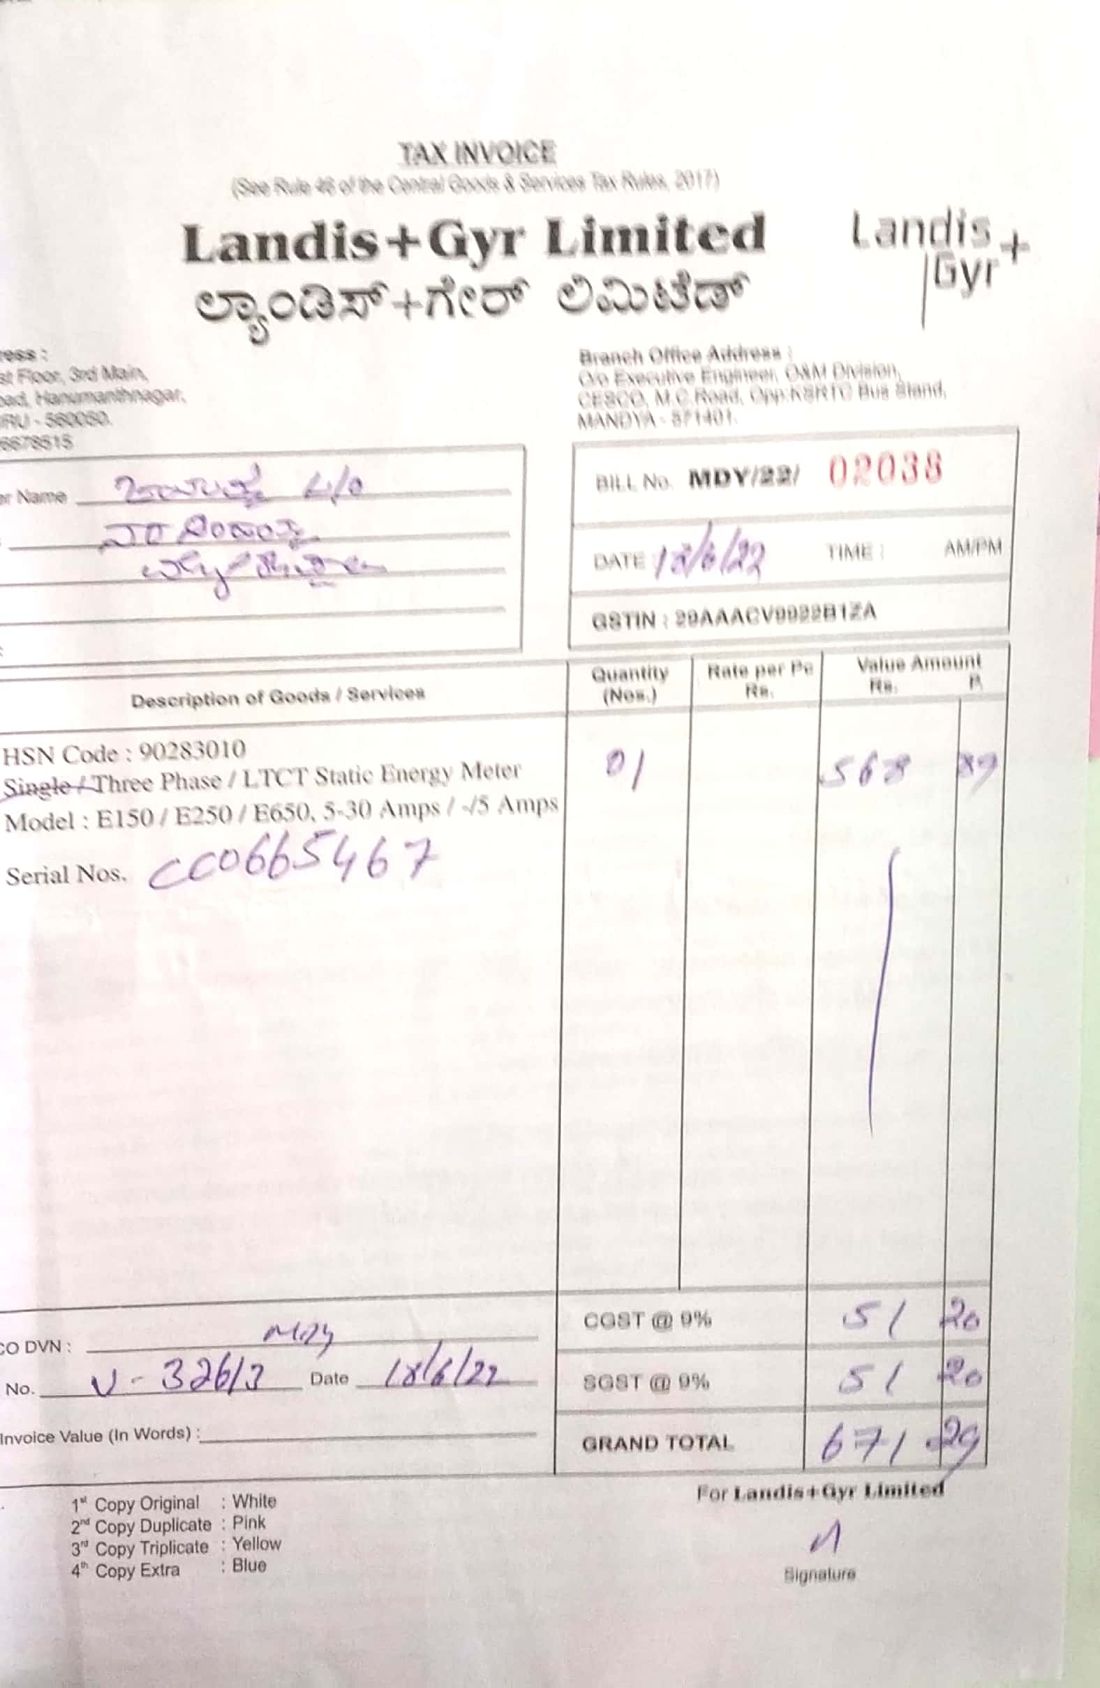 TAX INVOICE
(See Rule 46 of the Central Goods & Services Tax Rules, 2017)
Landis+Gyr Limited
ಲ್ಯಾಂಡಿಸ್+ಗೇರ್ ಲಿಮಿಟೆಡ್
Landis
Gyr+
ress :
st Floor, 3rd Main,
oad, Hanumanthnagar,
RU - 560050.
6678515
Branch Office Address :
O/o Executive Engineer, O&M Division,
CESCO, M.C.Road, Opp.KSRTC Bus Stand,
MANDYA - 571401.
er Name
BILL No. MDY/22/ 02038
DATE 18/6/22 TIME : AM/PM
GSTIN : 29AAACV9922B1ZA
Description of Goods / Services Quantity (Nos.) Rate per Pc Rs. Value Amount Rs. P.
HSN Code : 90283010 01 568 89
Single / Three Phase / LTCT Static Energy Meter
Model : E150 / E250 / E650, 5-30 Amps / -/5 Amps
Serial Nos. CC0665467
CGST @ 9% 51 20
CO DVN : MDY
SGST @ 9% 51 20
No. V-32613 Date 18/6/22
GRAND TOTAL 671 29
Invoice Value (In Words) :
1st Copy Original : White
2nd Copy Duplicate : Pink
3rd Copy Triplicate : Yellow
4th Copy Extra : Blue
For Landis+Gyr Limited
Signature